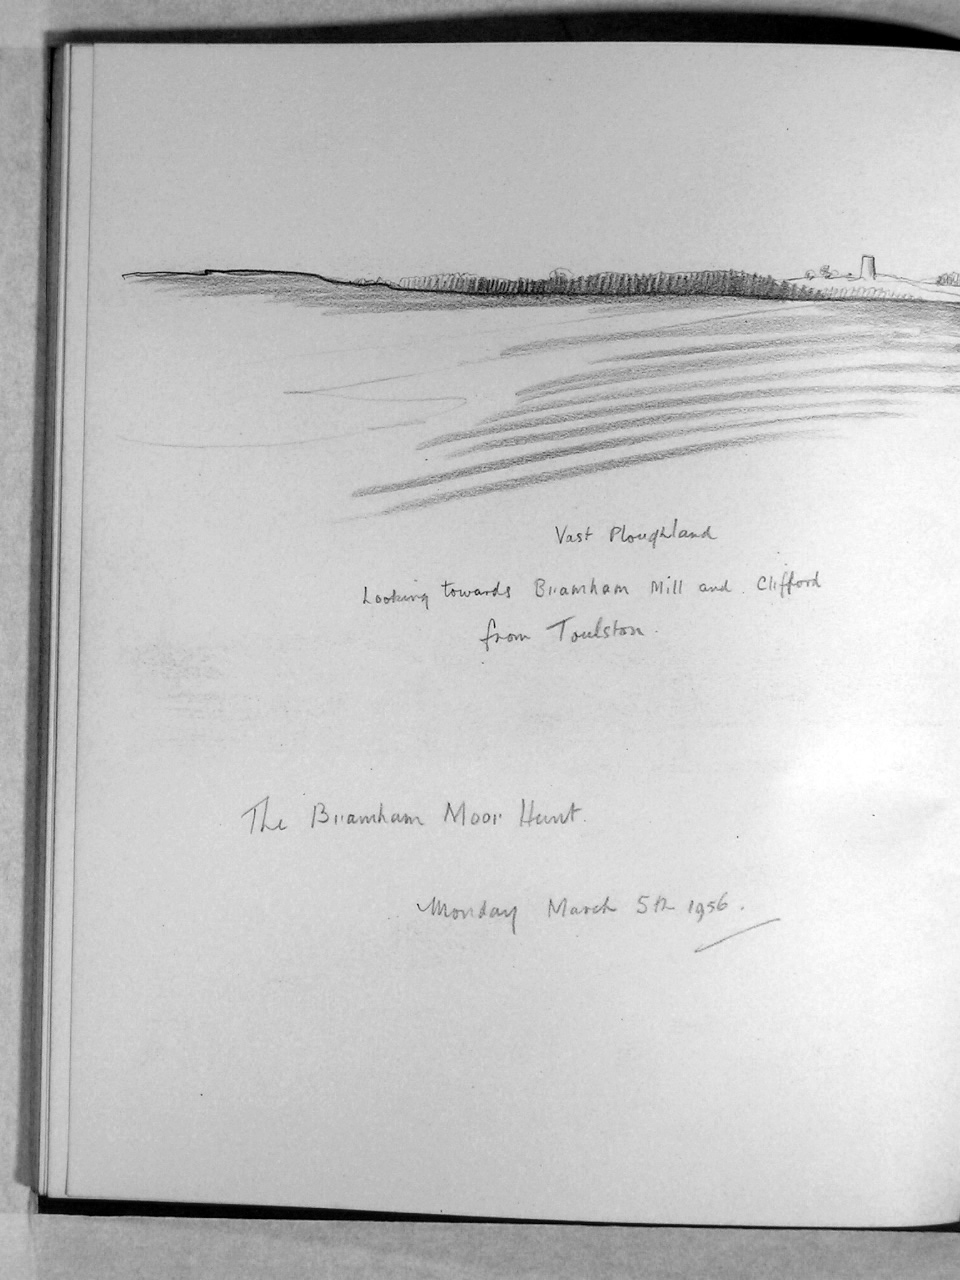 Vast Ploughland
Looking towards Bramham Mill and Clifford
from Toulston.
The Bramham Moor Hunt.
Monday March 5th 1956.